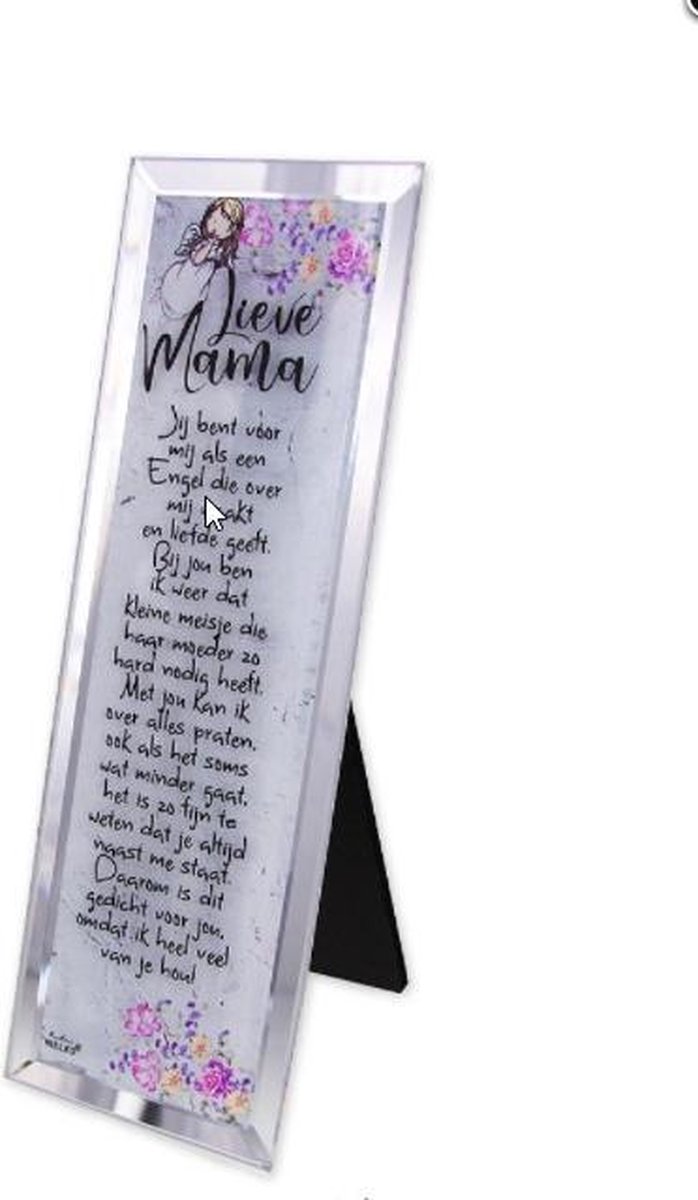 Lieve
Mama
Jij bent voor
mij als een
Engel die over
mij
en liefde geeft.
Bij jou ben
ik weer dat
kleine meisje die
haar moeder zo
hard nodig heeft.
Met jou kan ik
over alles praten.
ook als het soms
wat minder gaat.
het is zo fijn te
weten dat je altijd
naast me staat.
Daarom is dit
gedicht voor jou,
omdat ik heel veel
van je hou!